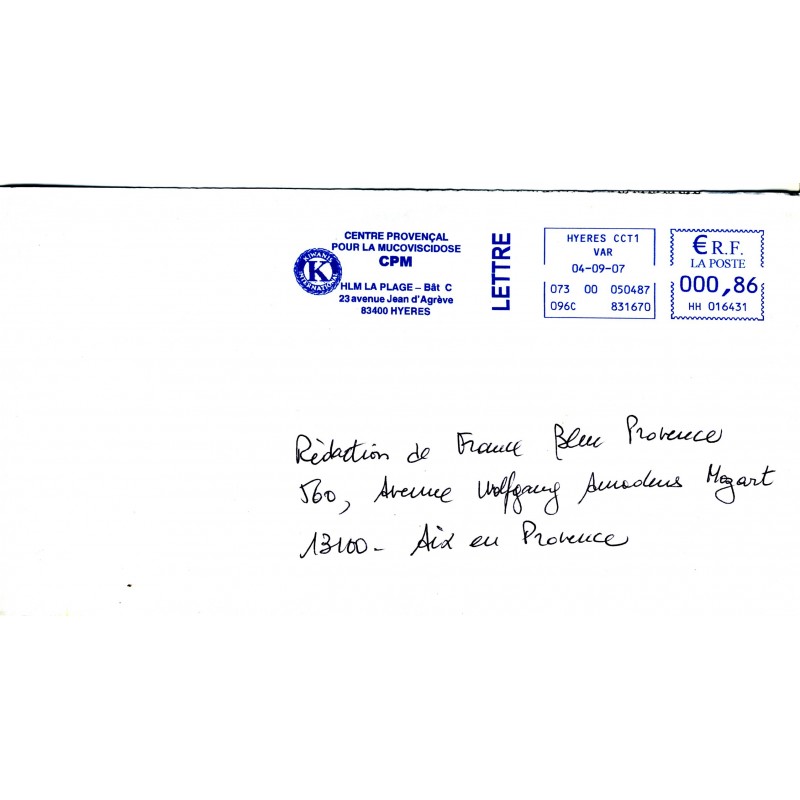 CENTRE PROVENÇAL
POUR LA MUCOVISCIDOSE
CPM
KIWANIS
INTERNATIONAL
K
HLM LA PLAGE – Bât C
23 avenue Jean d'Agrève
83400 HYERES
LETTRE
HYERES CCT1
VAR
04-09-07
073 00 050487
096C 831670
€ R.F.
LA POSTE
000,86
HH 016431
Rédaction de France Bleu Provence
560, Avenue Wolfgang Amadeus Mozart
13100 - Aix en Provence